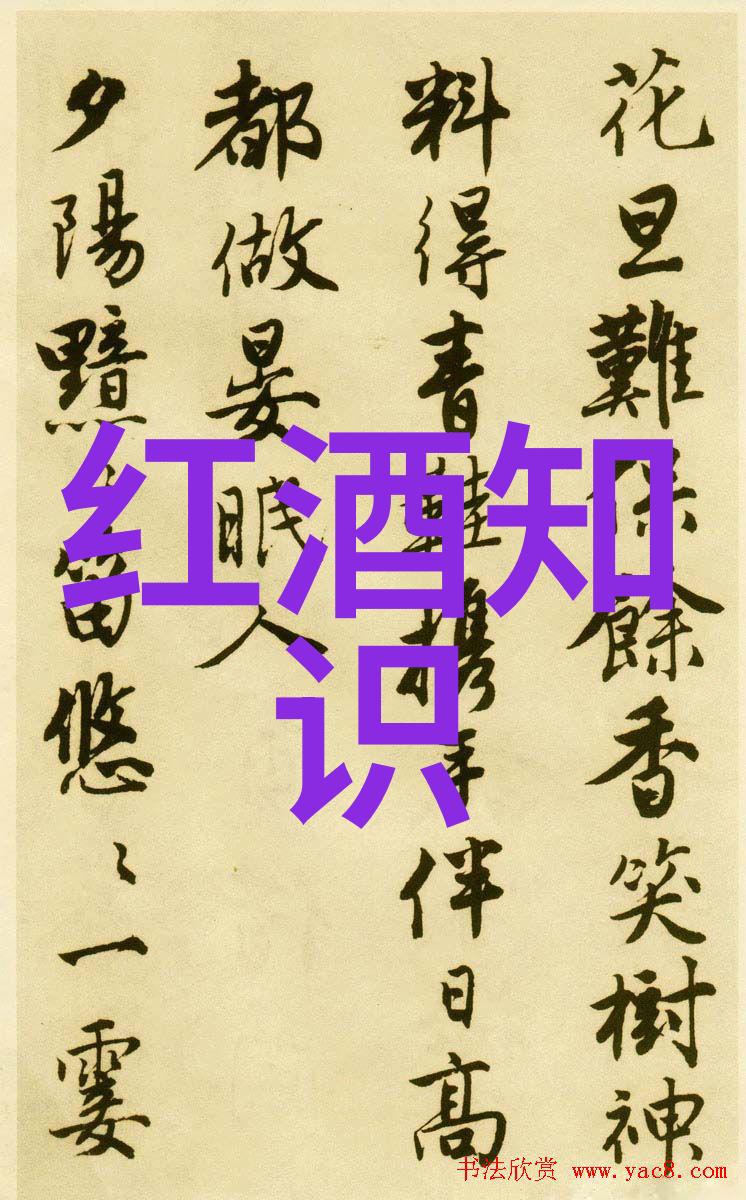 花旦難保餘香笑樹神
料得青鞋携手伴日高
都做晏眠人
夕陽黯〻笛悠〻一霎
红酒知
识
书法欣赏 www.yac8.com